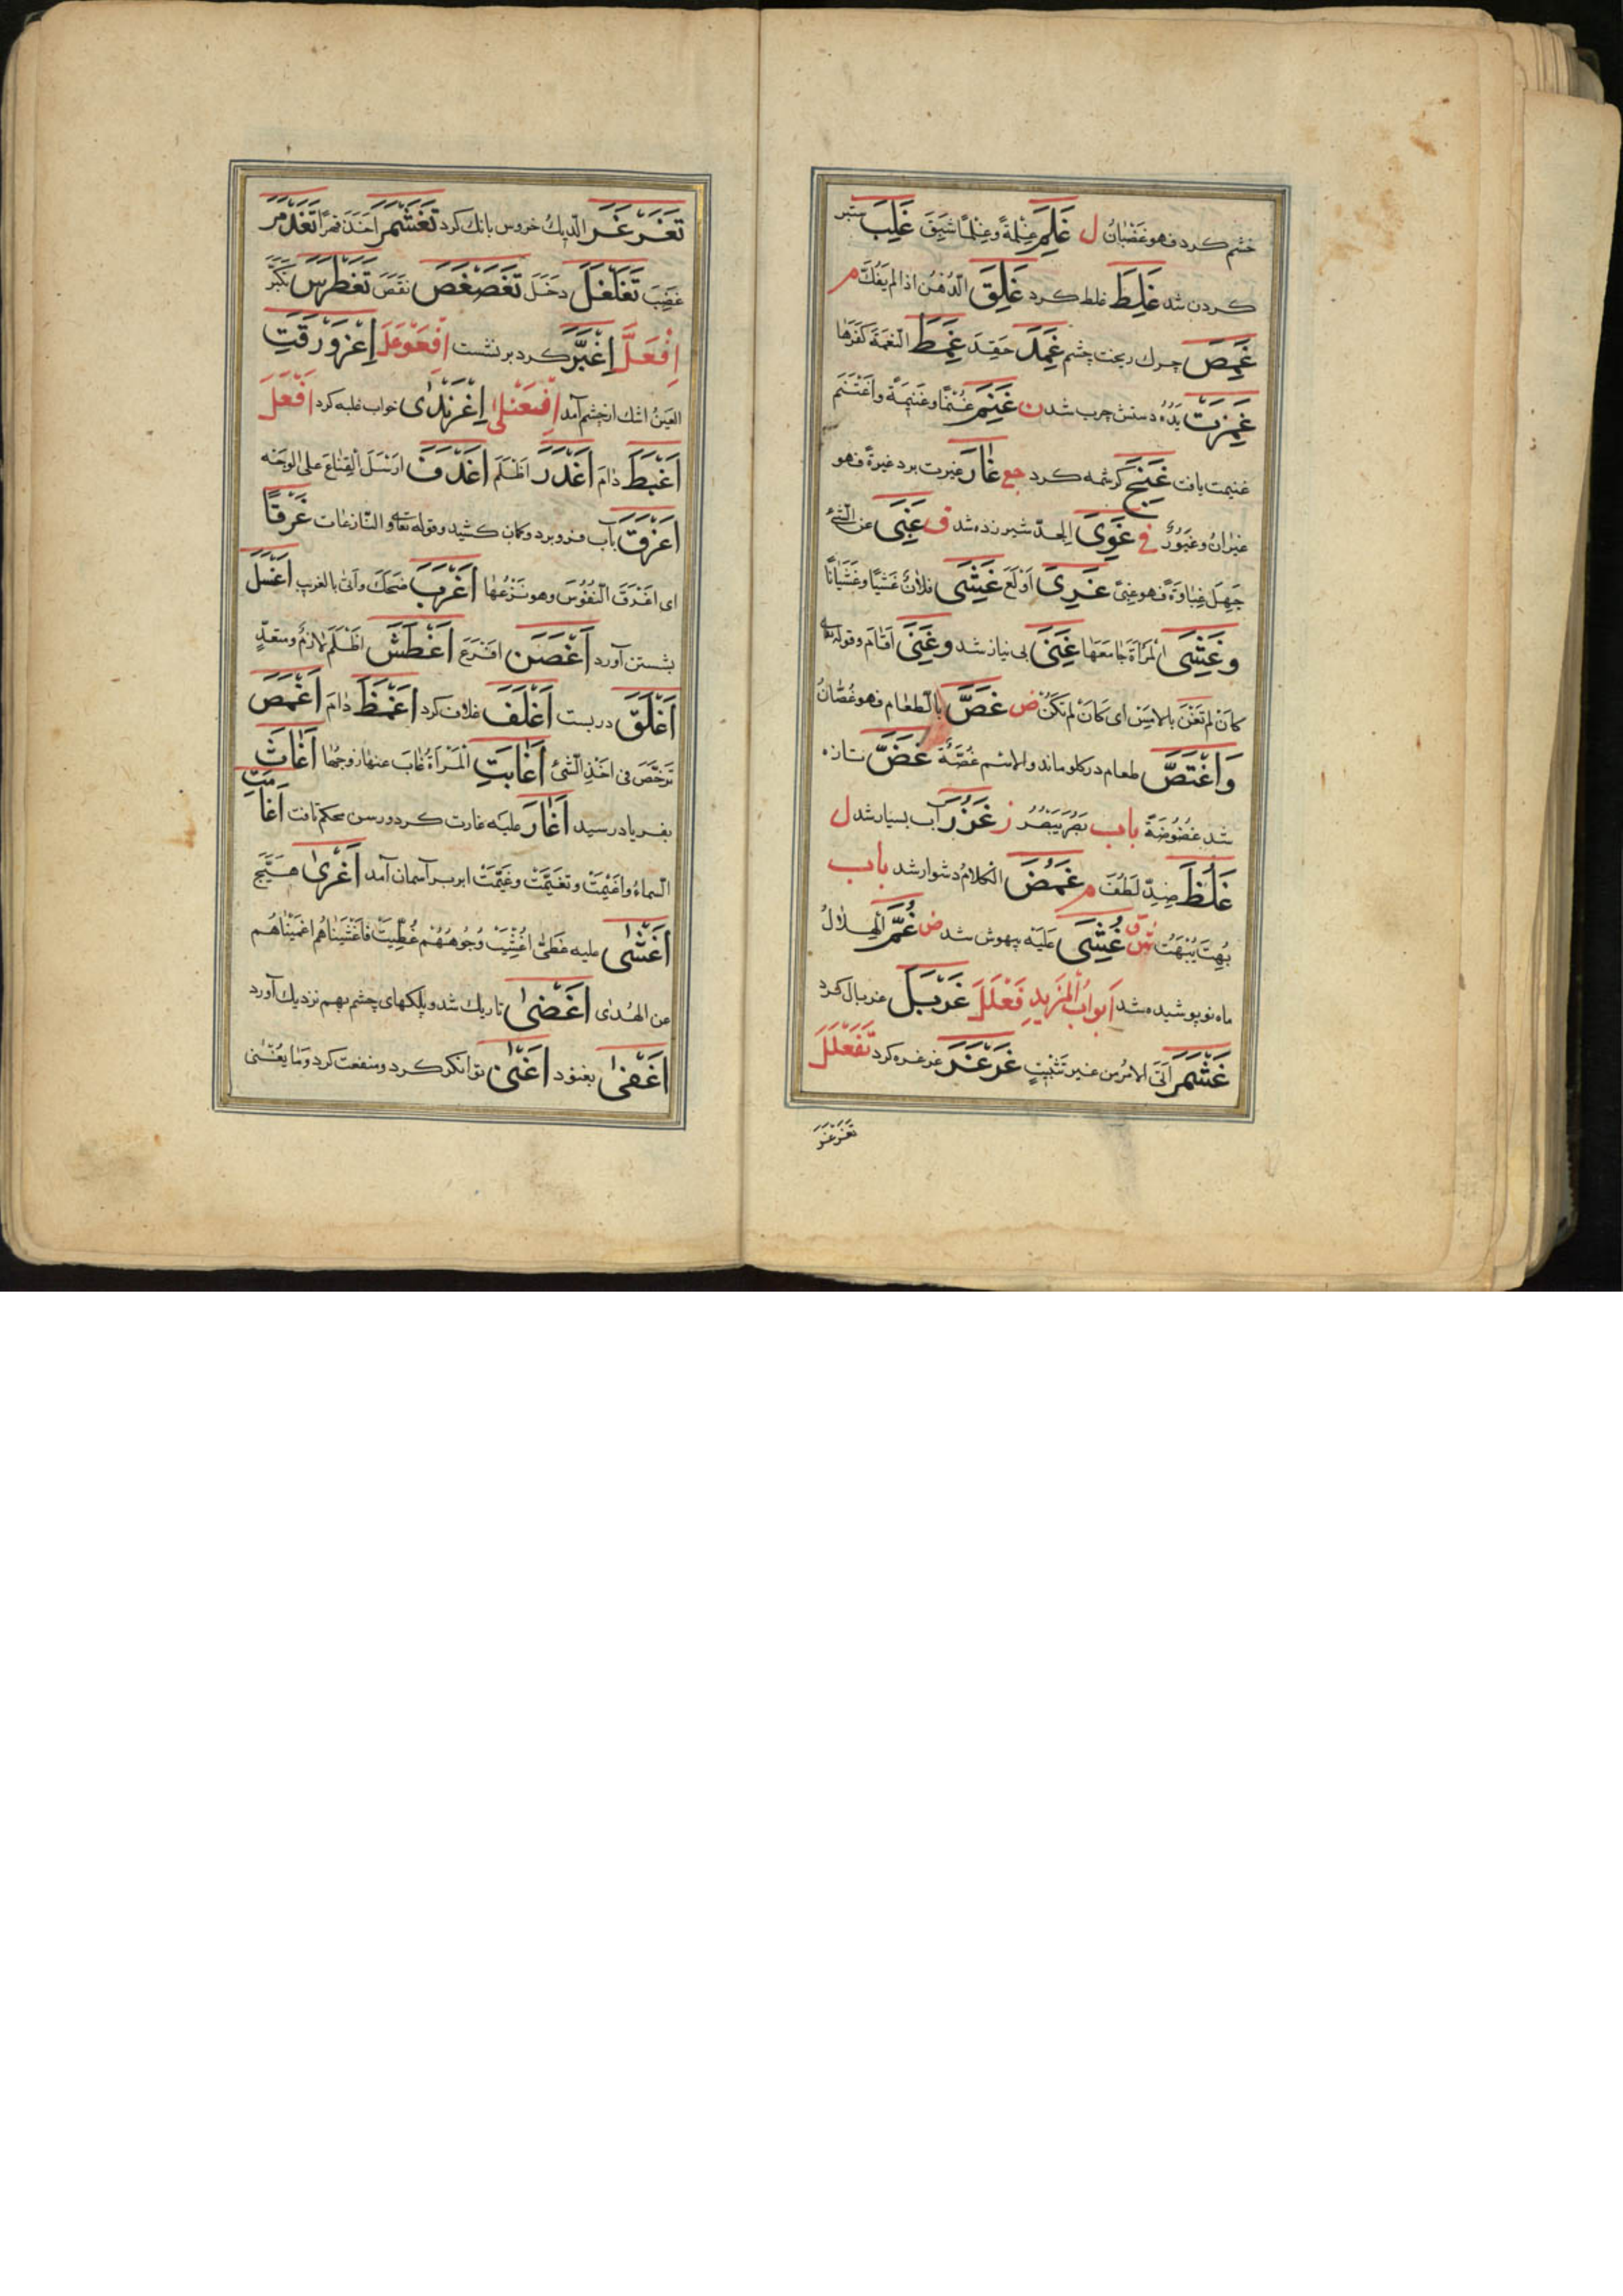 خشم كرد فهو غَضْبَانُ ل غَلِمَ غِلْمَةً وغِلْمًا شَبِقَ غَلِبَ ستبر
كردن شد غَلِطَ غلط كرد غَلِقَ الرَّهْنُ اذا لم يَفُكَّ م
غَمِصَ چرك ريخت چشم غَمِدَ حَقِدَ غَمِطَ النِّعْمَةَ كَفَرَهَا
غَمِرَتْ يَدُهُ دستش چرب شد ن غَنِمَ غُنْمًا وغَنِيمَةً واغْتَنَمَ
غنيمت يافت غَنِجَ كرشمه كرد جع غَارَ غيرت برد غيرةً فهو
غيرانُ وغيورٌ في غَوِىَ الجدىُ شير زده شد ف غَبِىَ عن الشئ
جَهِلَ غَبَاوَةً فهو غبىٌّ غَرِىَ اُوْلِعَ غَشِىَ فلانٌ غَشْيًا وغَشَيَانًا
وغَشِىَ المَرْاَةَ جَامَعَهَا غَنِىَ بى نياز شد وغَنِىَ اَقَامَ وقوله تعالى
كَاَنْ لم تَغْنَ بالامسِ اى كَاَنْ لم تَكُنْ ض غَصَّ بالطعام فهو غَصَّانُ
وَاغْتَصَّ طعام در كلو ماند والاسم غُصَّةٌ غَضَّ تازه
شد غُضُوضَةً باب بَصُرَ يَبْصُرُ ز غَزُرَ آب بسيار شد ل
غَلُظَ ضِدُّ لَطُفَ م غَمُضَ الكلامُ دشوار شد باب
بُهِتَ يُبْهَتُ ش ق غُشِىَ عَلَيْه بيهوش شد ض غُمَّ الْهِلَالُ
ماه نو پوشيده شد اَبوابُ المَزيدِ فَعْلَلَ غَرْبَلَ غربال كرد
غَشْمَرَ اَتَى الامرَ من غير تَثَبُّتٍ غَرْغَرَ غرغره كرد تَفَعْلَلَ
تغرغر
تَغَرْغَرَ الدّيكُ خروس بانك كرد تَغَشْمَرَ اَخَذَ قهرًا تَغَذْمَرَ
غَضِبَ تَغَلْغَلَ دَخَلَ تَغَصْغَصَ نَقَصَ تَغَطْرَسَ تكبَّرَ
اِفْعَلَّ اِغْبَرَّ كرد بر نشست اِفْعَوْعَلَ اِغْرَوْرَقَتِ
العينُ اشك از چشم آمد اِفْعَنْلَى اِغْرَنْدَى خواب غلبه كرد اَفْعَلَ
اَغْبَطَ دامَ اَغْدَرَ اَظْلَمَ اَغْدَفَ ارسَلَ القِنَاعَ على الوجه
اَغْرَقَ بآب فرو برد وكمان كشيد وقوله تعالى والنازعات غَرْقًا
اى اغْرَقَ النُّفُوسَ وهو نَزْعُهَا اَغْرَبَ ضَحِكَ وَاَتى بالغريب اَغْسَلَ
بشستن آورد اَغْصَنَ اَفْرَعَ اَغْطَشَ اَظْلَمَ لازمٌ ومتعدٍّ
اَغْلَقَ در بست اَغْلَفَ غلاف كرد اَغْمَطَ دامَ اَغْمَصَ
تَرَخَّصَ فى اَخْذِ الشئ اَغَابَتِ المَرْاَةُ غَابَ عنها زوجُها اَغَاثَ
بفرياد رسيد اَغَارَ عليَه غارت كرد ورسن محكم تافت اَغَامَتِ
السماءُ واَغْيَمَتْ وتَغَيَّمَتْ وغَيَّمَتْ ابر بر آسمان آمد اَغْرَى هَيَّجَ
اَغْشَى عليه غَطَّى اُغْشِيَتْ وُجُوهُهُمْ غُطِّيَتْ فَاَغْشَيْنَاهُم اَعْمَيْنَاهُم
عن الهُدَى اَغْضَى تاريك شد وپلكهاى چشم بهم نزديك آورد
اَغْفَى بغنود اَغْنَى توانكر كرد ومنفعت كرد وَمَا يُغْنِى